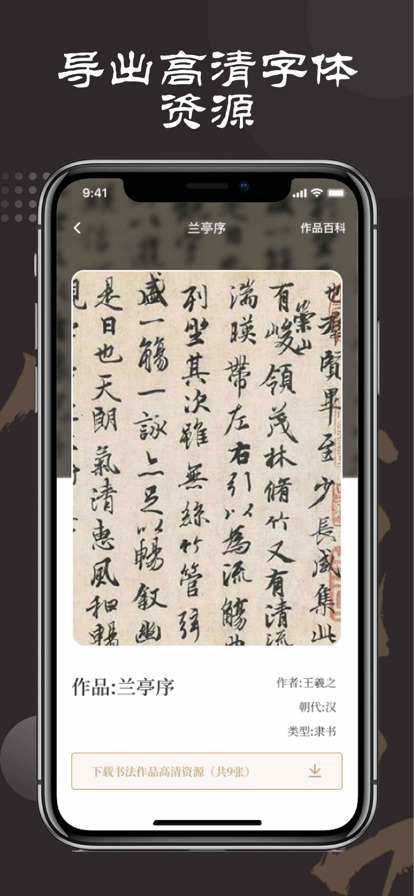 导出高清字体
资源
9:41
兰亭序
作品百科
也羣賢畢至少長咸集此
崇山
有峻領茂林脩竹又有清流
湍暎帶左右引以為流觴曲
列坐其次雖無絲竹管弦
盛一觴一詠亦足以暢敘幽
是日也天朗氣清惠風和暢
作品:兰亭序
作者:王羲之
朝代:汉
类型:隶书
下载书法作品高清资源（共9张）